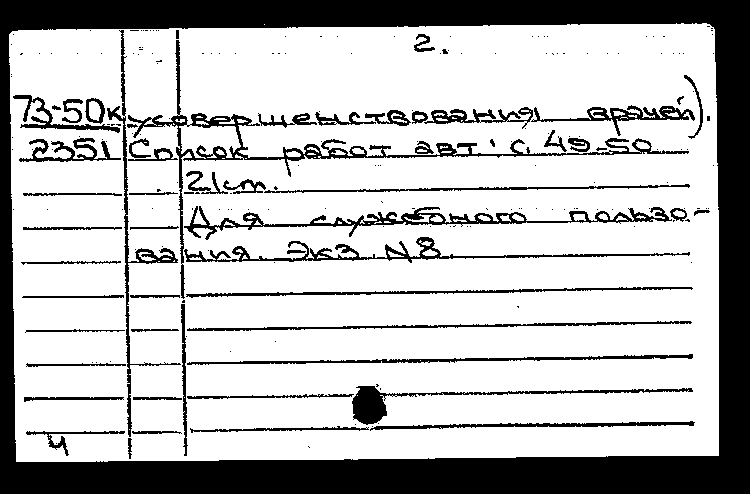 2.
73-50к усовершенствования врачей).
2351 Список работ авт.: с. 49-50
21 см.
Для служебного пользо-
вания. Экз. N 8.
ч